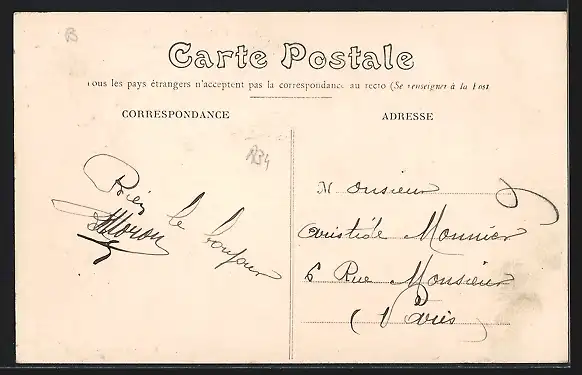 B
Carte Postale
Tous les pays étrangers n'acceptent pas la correspondance au recto (Se renseigner à la Post
CORRESPONDANCE
ADRESSE
le bonjour
Moron
Monsieur
Aristide Monnier
6 Rue Monsieur
(Paris)